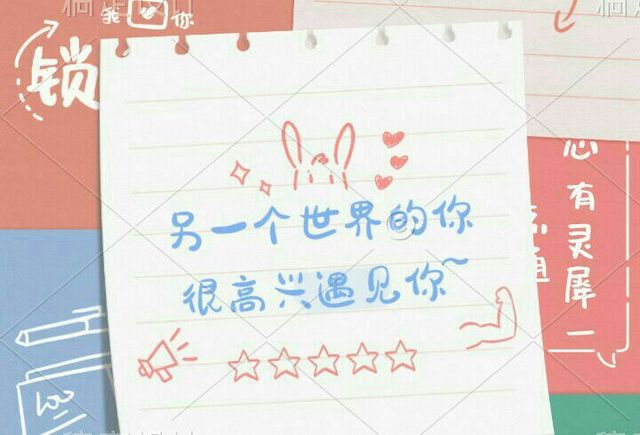 我 你
锁
另一个世界的你
很高兴遇见你~
心有灵犀一
通
100